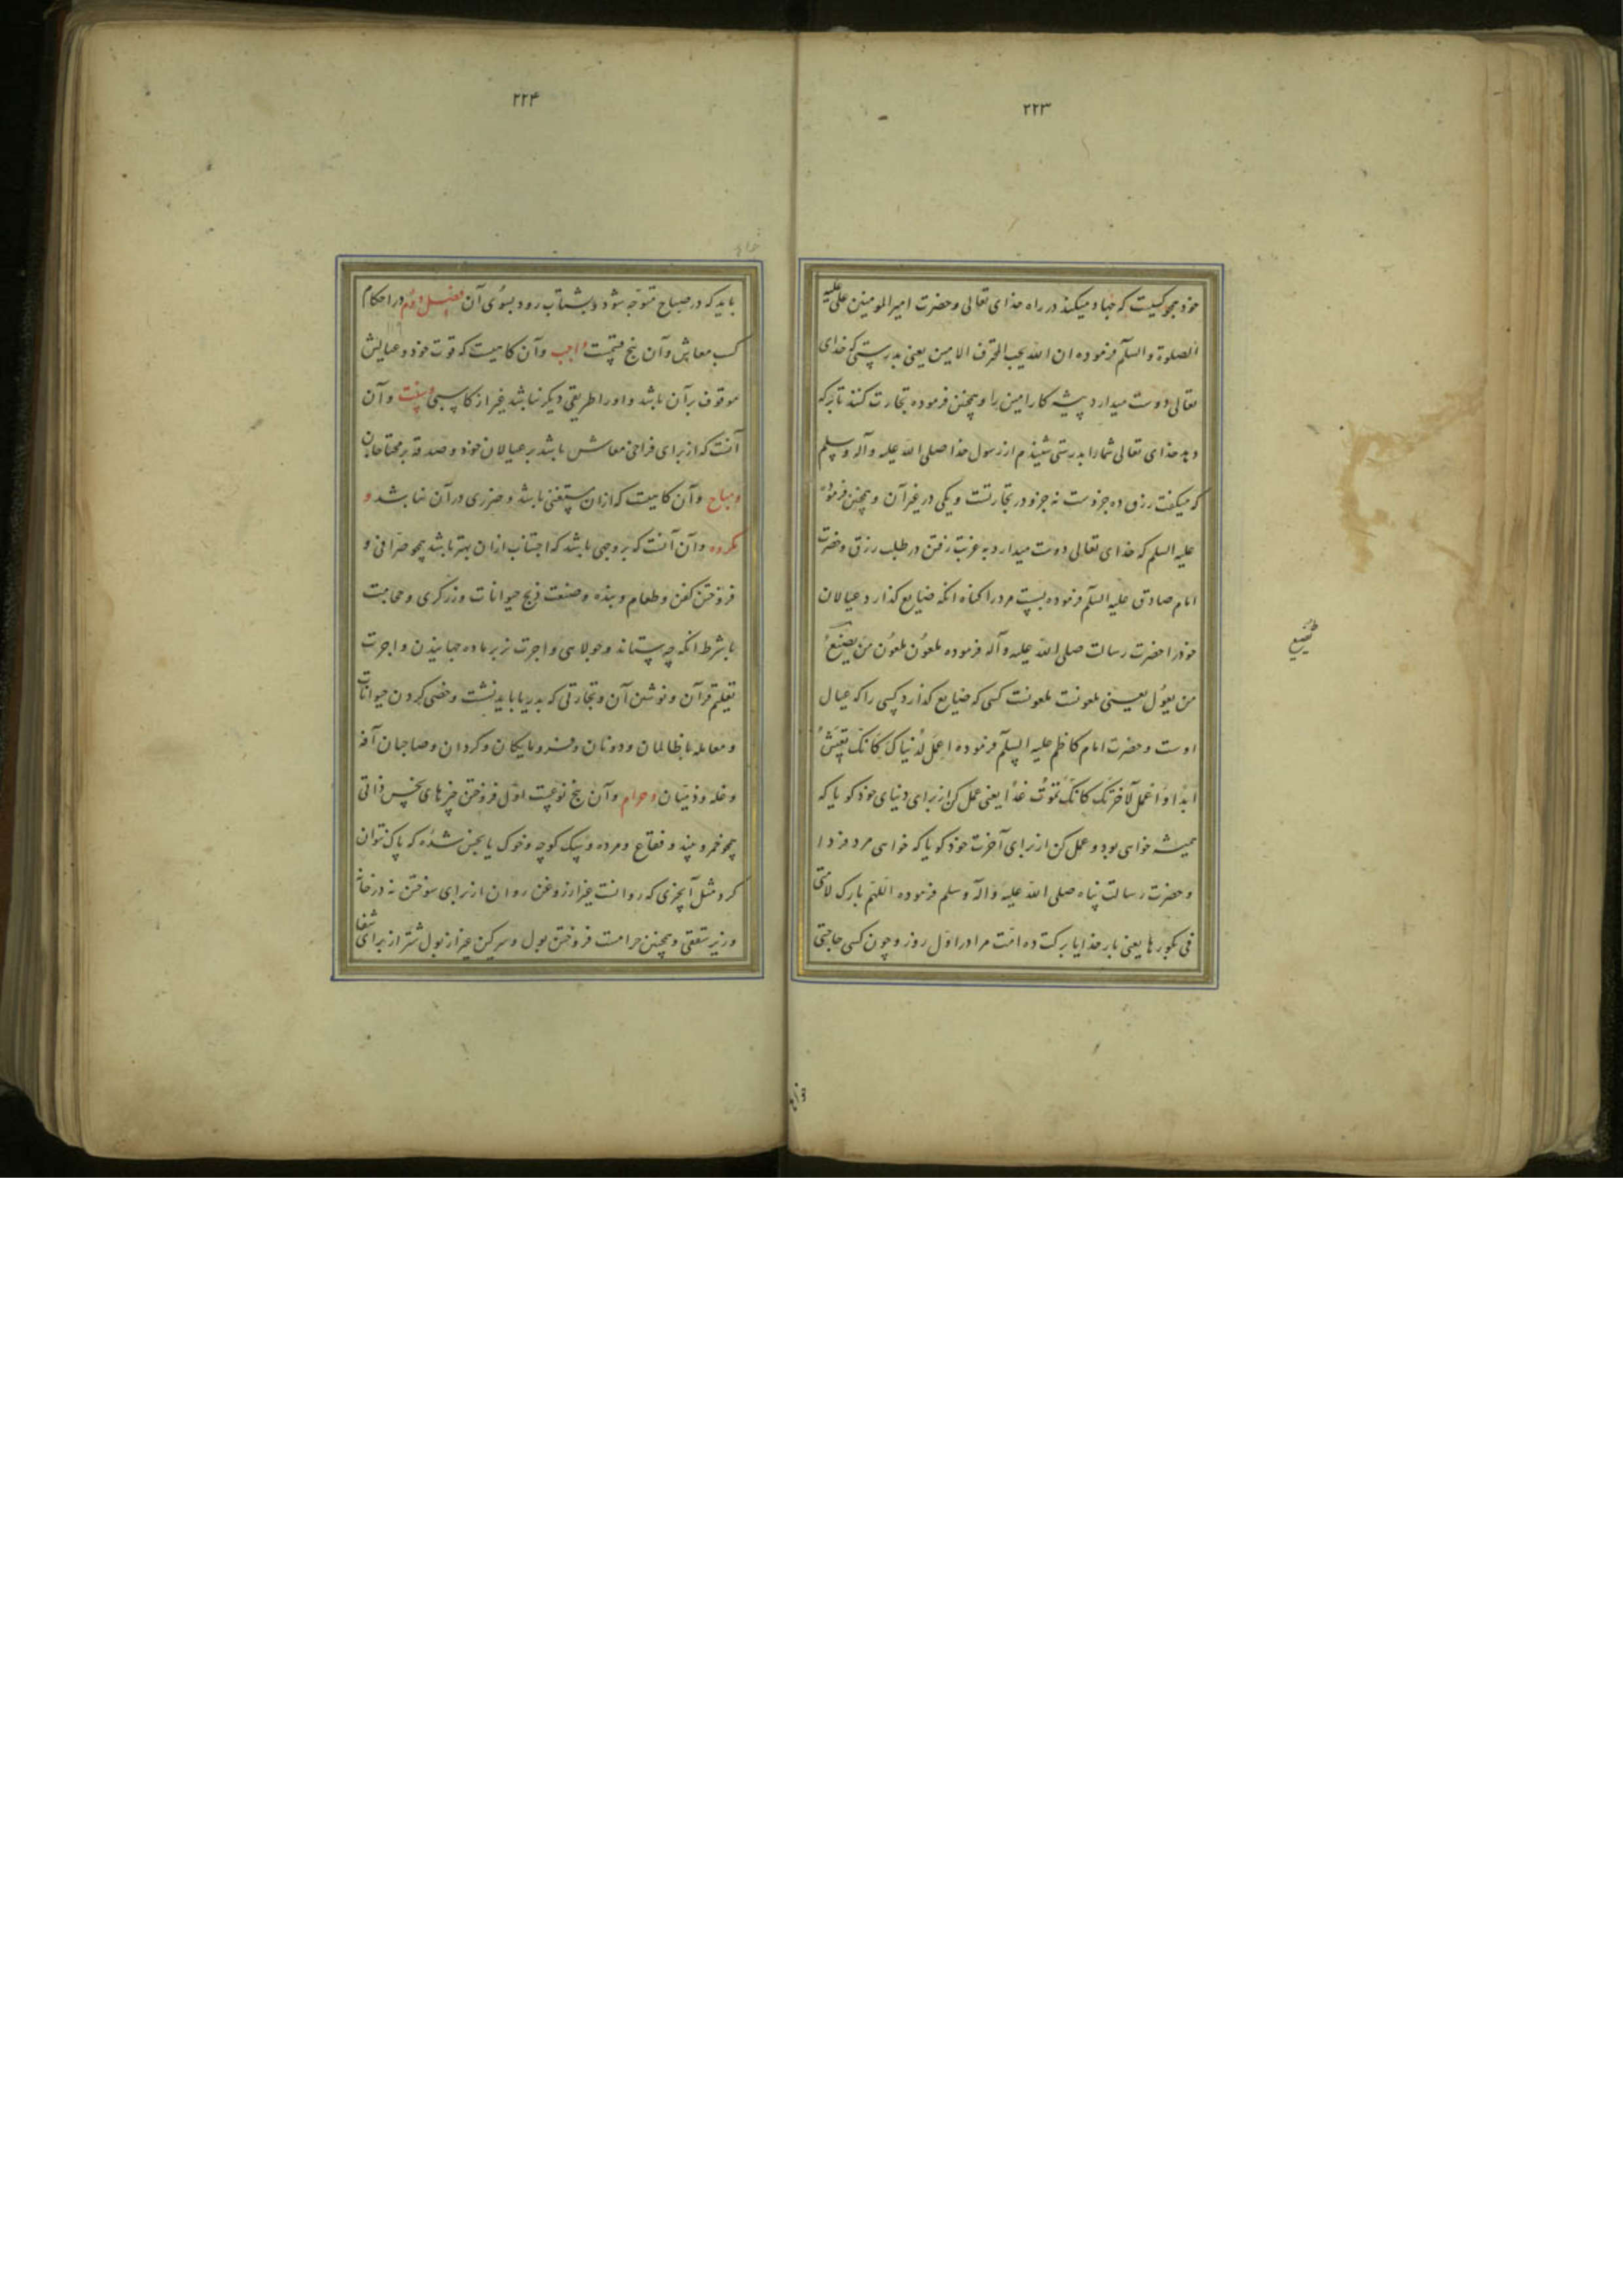 ۲۲۳
خود همچو کسیست که جهاد میکند در راه خدای تعالی و حضرت امیر المومنین علی علیه
الصلوة والسلم فرموده ان الله یحب المحترف الامین یعنی بدرستی که خدای
تعالی دوست میدارد پیشه کار امین را و همچنین فرموده تجارت کنند تا برکه
دهد خدای تعالی شمارا بدرستی شنیدم از رسول خدا صلی الله علیه وآله وسلم
که میکفت رزق ده جزوست نه جزو در تجارتست و یکی در غیر آن و همچنین فرموده
علیه السلم که خدای تعالی دوست میدارد به غربت رفتن در طلب رزق و حضرت
امام صادق علیه السلم فرموده بس مرد را کناه انکه ضایع کذارد عیالان
خود را حضرت رسالت صلی الله علیه وآله فرموده ملعون ملعون من یضیع
تضییع
من یعول یعنی ملعونست ملعونست کسی که ضایع کذارد کسی را که عیال
اوست و حضرت امام کاظم علیه السلم فرموده اعمل لدنیاک کانک تعیش
ابدا و اعمل لآخرتک کانک تموت غدا یعنی عمل کن از برای دنیای خود کویا که
همیشه خواهی بود و عمل کن از برای آخرت خود کویا که خواهی مرد فردا
و حضرت رسالت پناه صلی الله علیه وآله وسلم فرموده اللهم بارک لامتی
فی بکورها یعنی بار خدایا برکت ده امت مرا در اول روز و چون کسی حاجتی
۲۲۴
باید که در صباح متوجه شود و بشتاب رود بسوی آن فصل دوم در احکام
کسب معاش و آن پنج قسمست واجب و آن کاریست که قوت خود و عیالش
موقوف بر آن باشد و او را طریقی دیکر نباشد غیر از کاسبی و سنت و آن
آنست که از برای فراخی معاش باشد بر عیالان خود و صدقه بر محتاجان
و مباح و آن کاریست که ازان مستغنی باشد و ضرری در آن نباشد و
مکروه و آن آنست که بر وجهی باشد که اجتناب ازان بهتر باشد همچو صرافی و
فروختن کفن و طعام و بنده و صنعت ذبح حیوانات و زرکری و حجامت
با شرط انکه چه ستاند و جولاهی و اجرت نر بر ماده جهانیدن و اجرت
تعلیم قرآن و نوشتن آن و تجارتی که بدریا باید نشست و خصی کردن حیوانات
و معامله با ظالمان و دونان و فرومایکان و کردان و صاحبان آفه
و غله و ذمیان و حرام و آن پنج نوعست اول فروختن چیزهای نجس ذاتی
همچو خمر و نبیذ و فقاع و مرده و سک کوچه و خوک یا نجس شده که پاک نتوان
کرد مثل آبچیزی که روانست غیر از روغن روان از برای سوختن نه در خانه
و زیر سقفی و همچنین حرامست فروختن بول و سرکین غیر از بول شتر از برای شفا